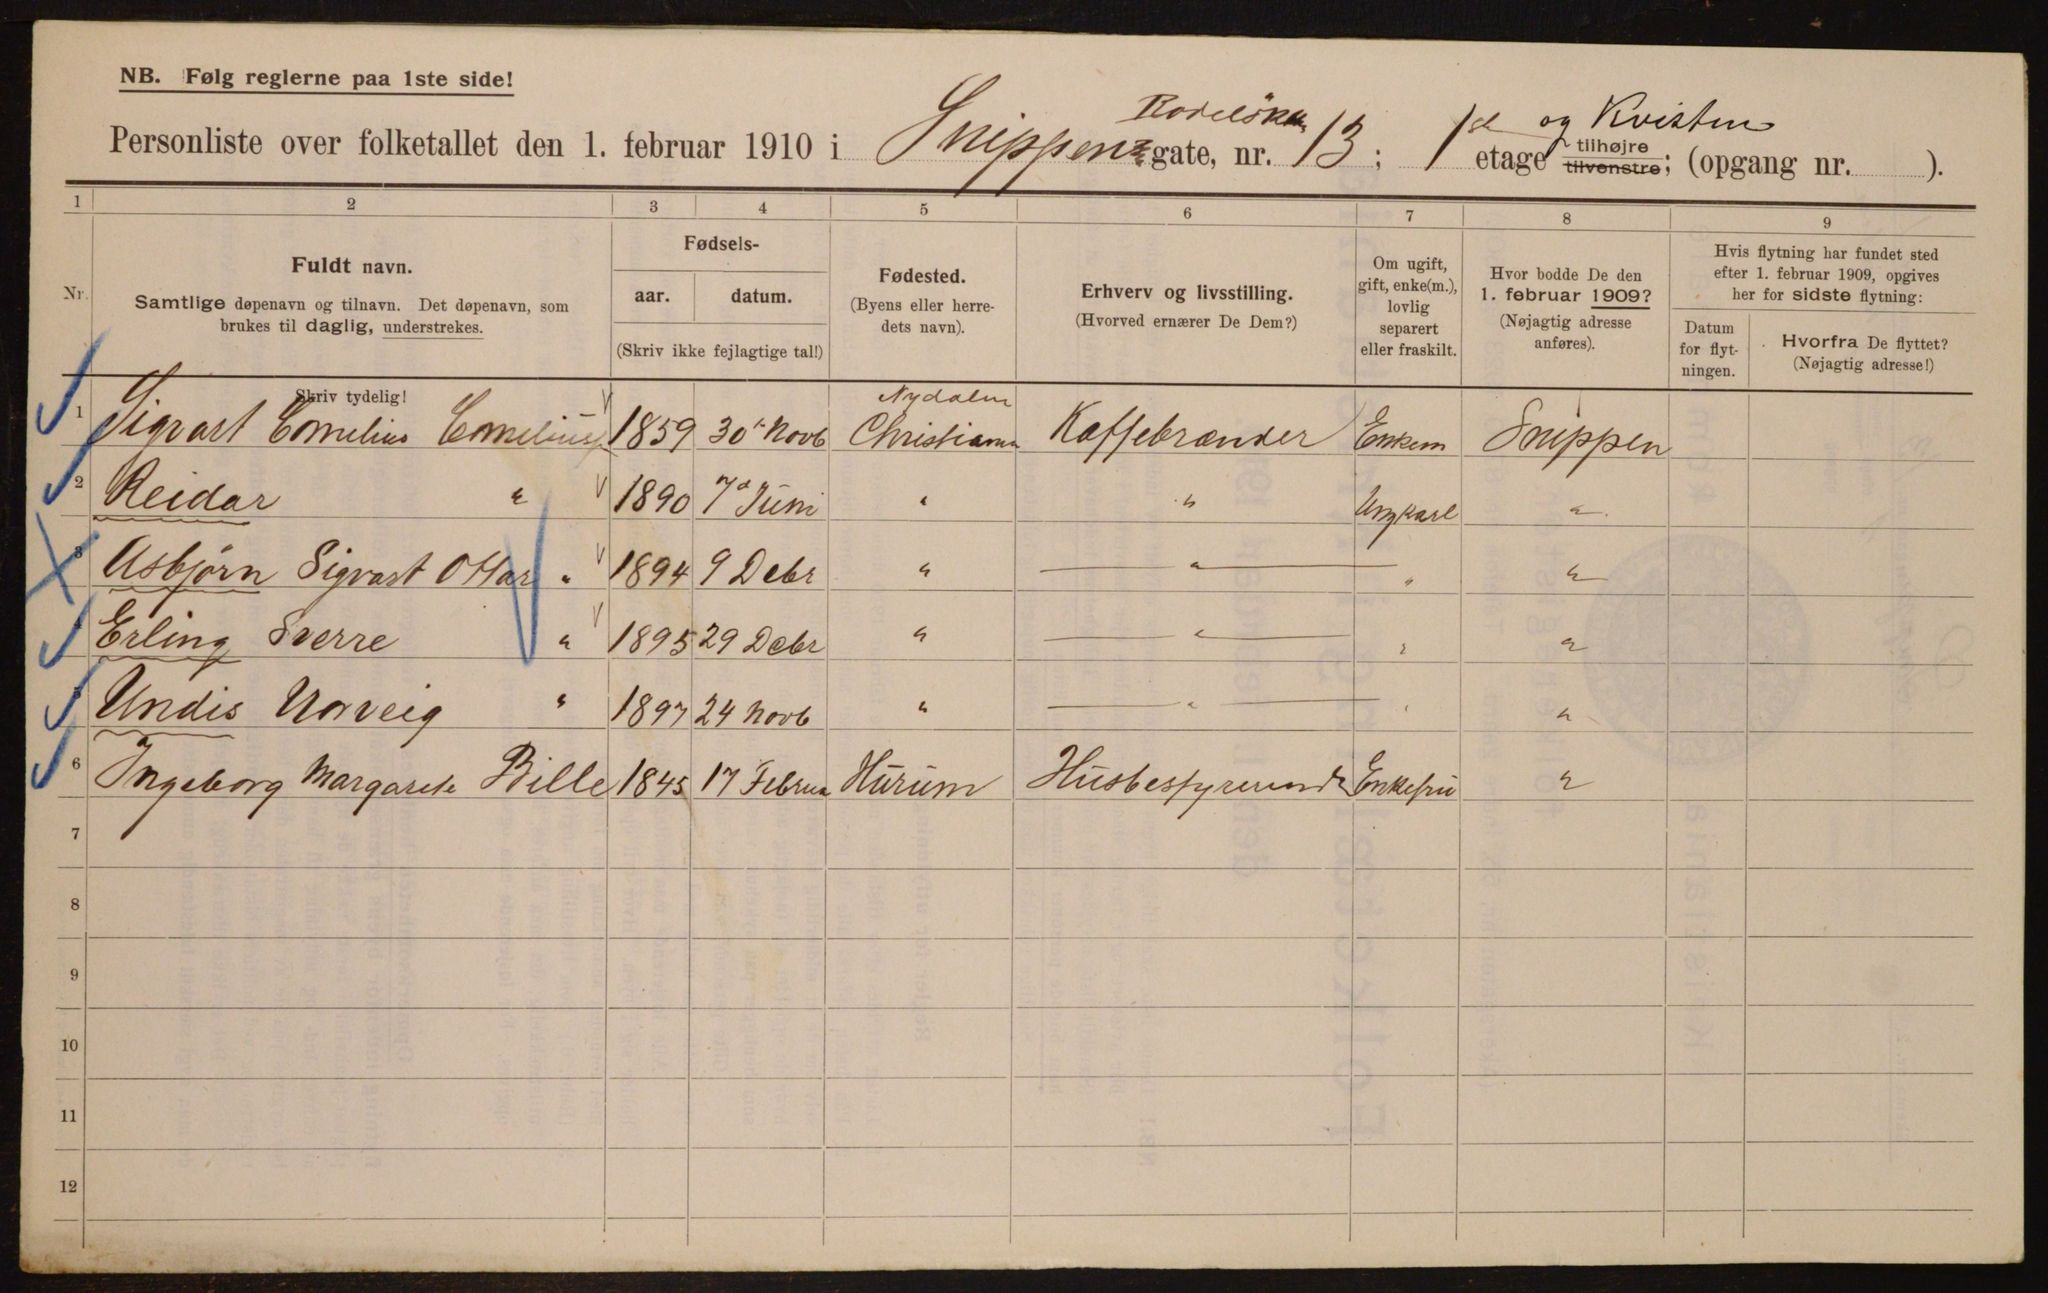 NB. Følg reglerne paa 1ste side!
Personliste over folketallet den 1. februar 1910 i Snippen gate, nr. 13; 1 etage og Kvisten tilhøjre tilvenstre; (opgang nr. ).
1 2 3 4 5 6 7 8 9
Nr.
Fuldt navn.
Samtlige døpenavn og tilnavn. Det døpenavn, som
brukes til daglig, understrekes.
Fødsels-
aar. datum.
(Skriv ikke fejlagtige tal!)
Fødested.
(Byens eller herre-
dets navn).
Erhverv og livsstilling.
(Hvorved ernærer De Dem?)
Om ugift,
gift, enke(m.),
lovlig
separert
eller fraskilt.
Hvor bodde De den
1. februar 1909?
(Nøjagtig adresse
anføres).
Hvis flytning har fundet sted
efter 1. februar 1909, opgives
her for sidste flytning:
Datum
for flyt-
ningen.
Hvorfra De flyttet?
(Nøjagtig adresse!)
Skriv tydelig!
Nydalen
1 Sigvart Cornelius Cornelius 1859 30 Novb Christiania Kaffebrænder Enkem Snippen
2 Reidar " 1890 7d Juni " " Ungkarl "
3 Asbjørn Sigvart Ottar " 1894 9 Debr " " " "
4 Erling Sverre " 1895 29 Debr " " " "
5 Undis Norveig " 1897 24 Novb " " " "
6 Ingeborg Margarete Bille 1845 17 Februa Hurum Husbestyrerinde Enkefru "
7
8
9
10
11
12